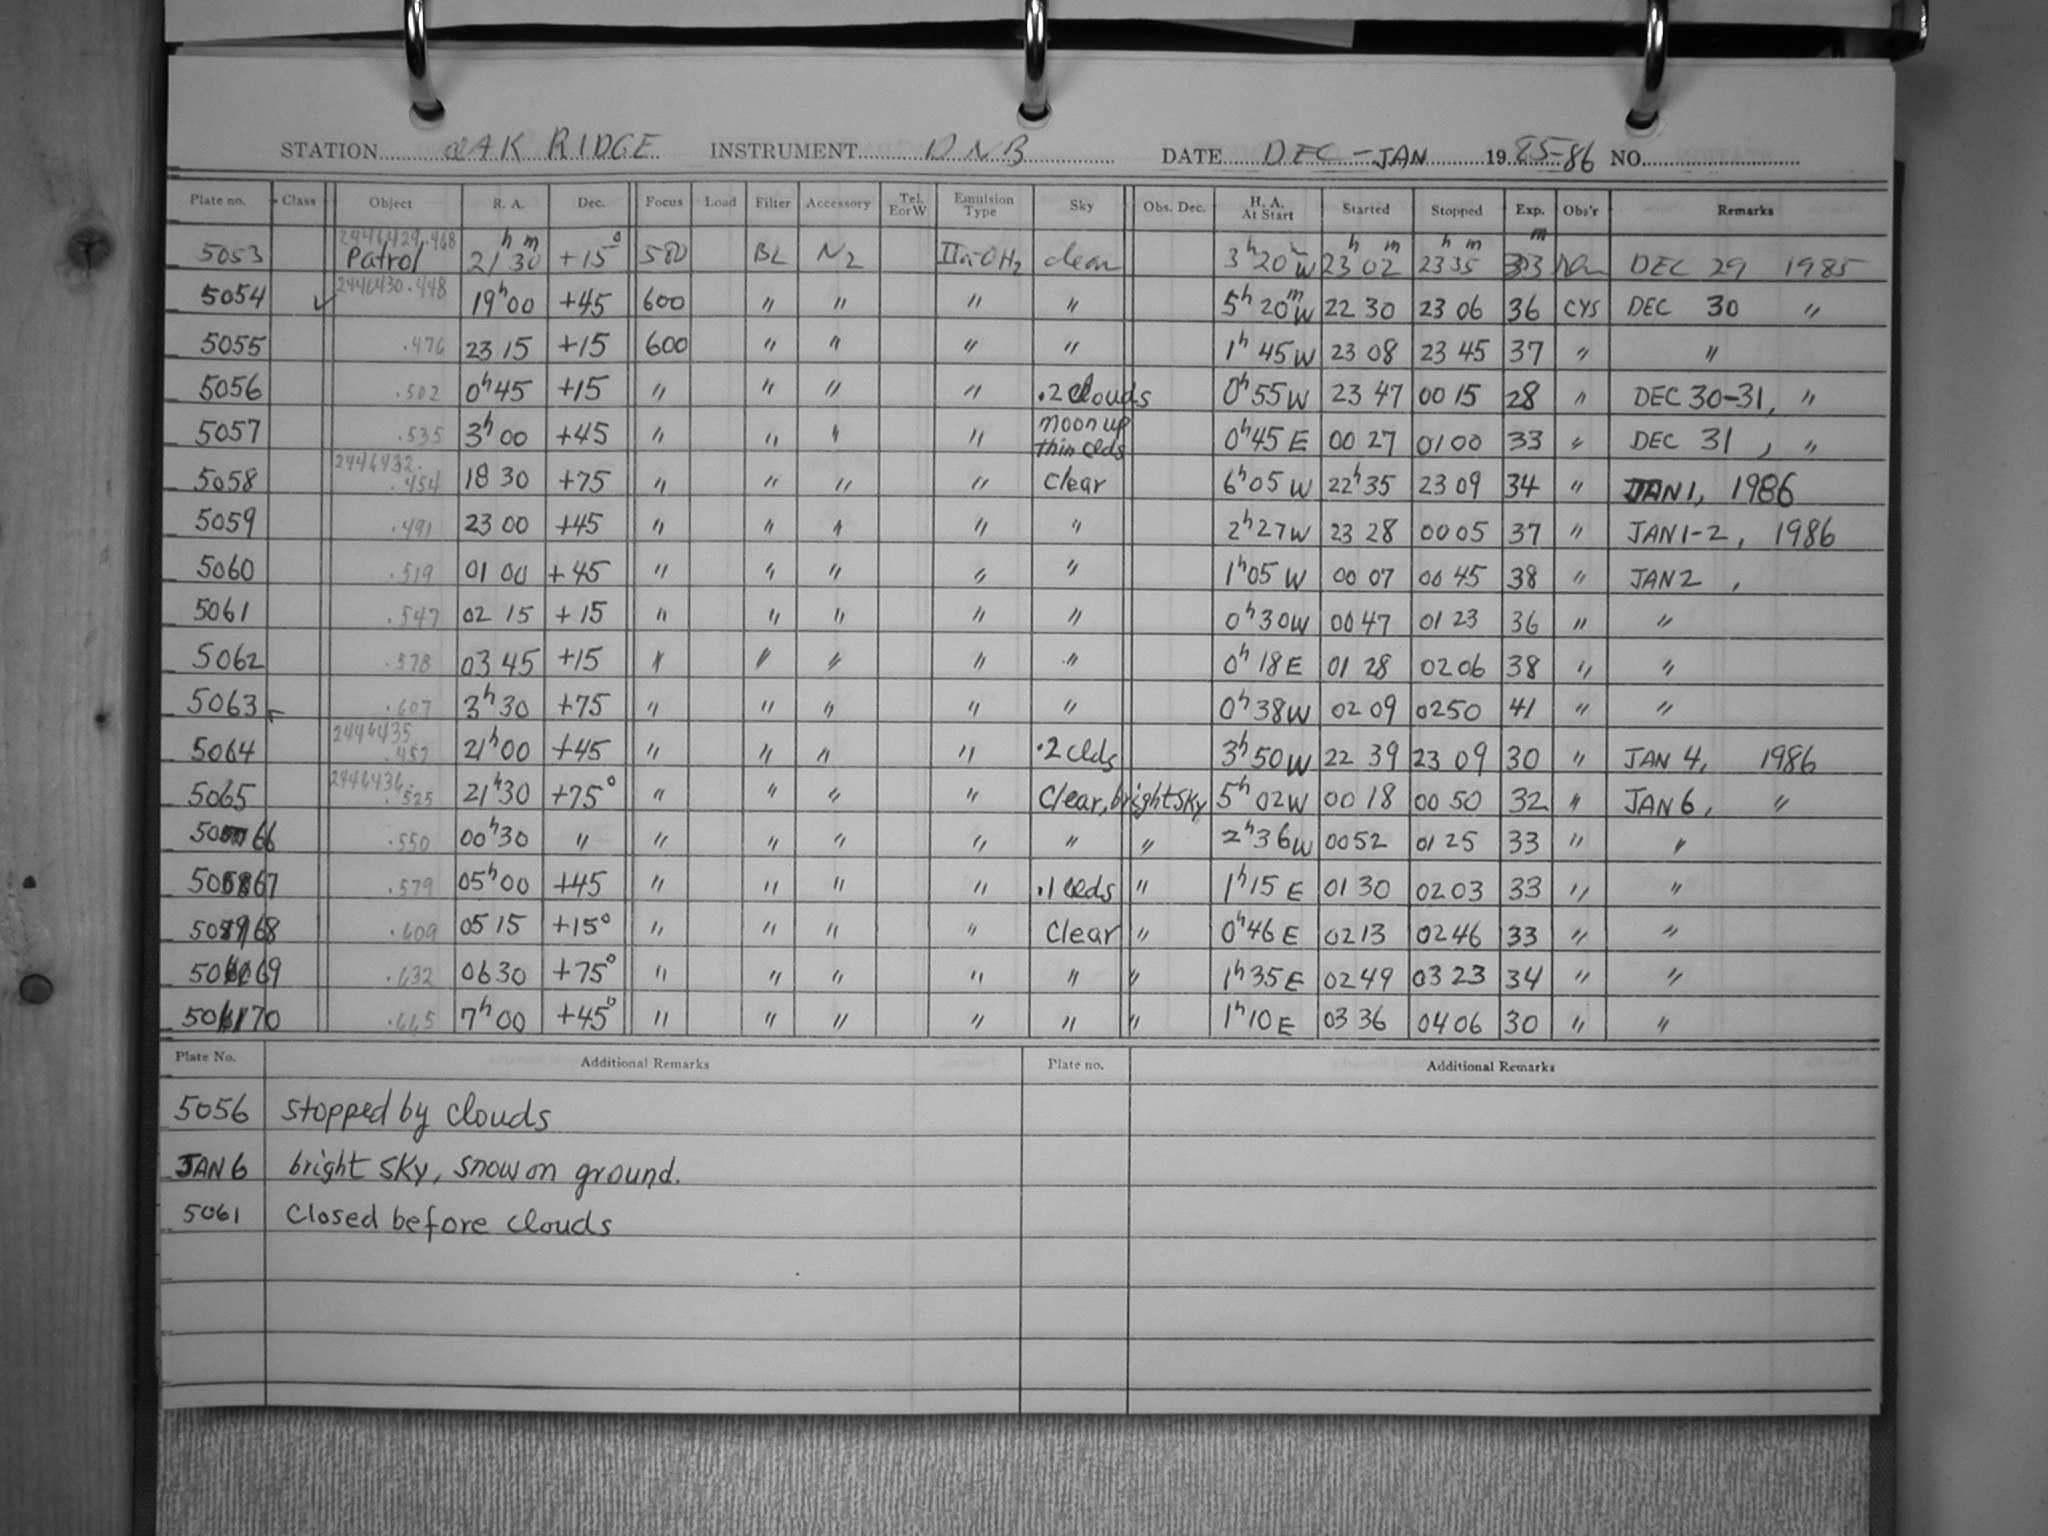 STATION OAK RIDGE INSTRUMENT DNB DATE DEC-JAN 1985-86 NO.
Plate no. Class Object R. A. Dec. Focus Load Filter Accessory Tel. E or W Emulsion Type Sky Obs. Dec. H. A. At Start Started Stopped Exp. Obs'r Remarks
5053 2446429.468 Patrol 21h 30m +15° 580 BL N2 IIa-OH2 clear 3h 20m W 23h 02m 23h 35m 33m DEC 29 1985
5054 ✓ 2446430.448 19h00 +45 600 " " " " 5h 20m W 22 30 23 06 36 CYS DEC 30 "
5055 .476 23 15 +15 600 " " " " 1h 45 W 23 08 23 45 37 " "
5056 .502 0h45 +15 " " " " .2 Clouds 0h 55 W 23 47 00 15 28 " DEC 30-31, "
5057 .535 3h 00 +45 " " " " moon up thin Clds 0h 45 E 00 27 01 00 33 " DEC 31, "
5058 2446432.454 18 30 +75 " " " " Clear 6h 05 W 22h 35 23 09 34 " JAN 1, 1986
5059 .491 23 00 +45 " " " " " 2h 27 W 23 28 00 05 37 " JAN 1-2, 1986
5060 .519 01 00 +45 " " " " " 1h 05 W 00 07 00 45 38 " JAN 2,
5061 .547 02 15 +15 " " " " " 0h 30 W 00 47 01 23 36 " "
5062 .578 03 45 +15 " " " " " 0h 18 E 01 28 02 06 38 " "
5063 .607 3h 30 +75 " " " " " 0h 38 W 02 09 02 50 41 " "
5064 2446435.452 21h 00 +45 " " " " .2 Clds 3h 50 W 22 39 23 09 30 " JAN 4, 1986
5065 2446436.525 21h30 +75° " " " " Clear, bright SKY 5h 02 W 00 18 00 50 32 " JAN 6, "
5066 .550 00h30 " " " " " " " 2h 36 W 00 52 01 25 33 " "
5067 .579 05h00 +45 " " " " .1 Clds " 1h 15 E 01 30 02 03 33 " "
5068 .609 05 15 +15° " " " " Clear " 0h 46 E 02 13 02 46 33 " "
5069 .632 06 30 +75° " " " " " " 1h 35 E 02 49 03 23 34 " "
5070 .665 7h 00 +45° " " " " " " 1h 10 E 03 36 04 06 30 " "
Plate No. Additional Remarks Plate no. Additional Remarks
5056 stopped by clouds
JAN 6 bright SKY, snow on ground.
5061 Closed before clouds